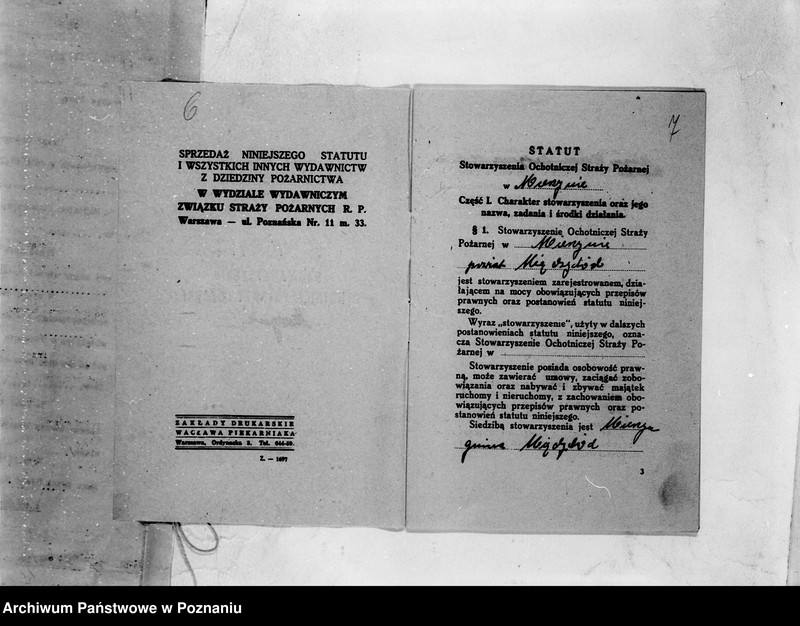 6
SPRZEDAŻ NINIEJSZEGO STATUTU
I WSZYSTKICH INNYCH WYDAWNICTW
Z DZIEDZINY POŻARNICTWA
W WYDZIALE WYDAWNICZYM
ZWIĄZKU STRAŻY POŻARNYCH R. P.
Warszawa — ul. Poznańska Nr. 11 m. 33.
ZAKŁADY DRUKARSKIE
WACŁAWA PIEKARNIAKA
Warszawa, Ordynacka 3. Tel.
Z. — 1697
7
STATUT
Stowarzyszenia Ochotniczej Straży Pożarnej
w
Część I. Charakter stowarzyszenia oraz jego
nazwa, zadania i środki działania.
§ 1. Stowarzyszenie Ochotniczej Straży
Pożarnej w
powiat Międzychód
jest stowarzyszeniem zarejestrowanem, dzia-
łającem na mocy obowiązujących przepisów
prawnych oraz postanowień statutu niniej-
szego.
Wyraz „stowarzyszenie", użyty w dalszych
postanowieniach statutu niniejszego, ozna-
cza Stowarzyszenie Ochotniczej Straży Po-
żarnej w
Stowarzyszenie posiada osobowość praw-
ną, może zawierać umowy, zaciągać zobo-
wiązania oraz nabywać i zbywać majątek
ruchomy i nieruchomy, z zachowaniem obo-
wiązujących przepisów prawnych oraz po-
stanowień statutu niniejszego.
Siedzibą stowarzyszenia jest
gmina Międzychód
3
Archiwum Państwowe w Poznaniu